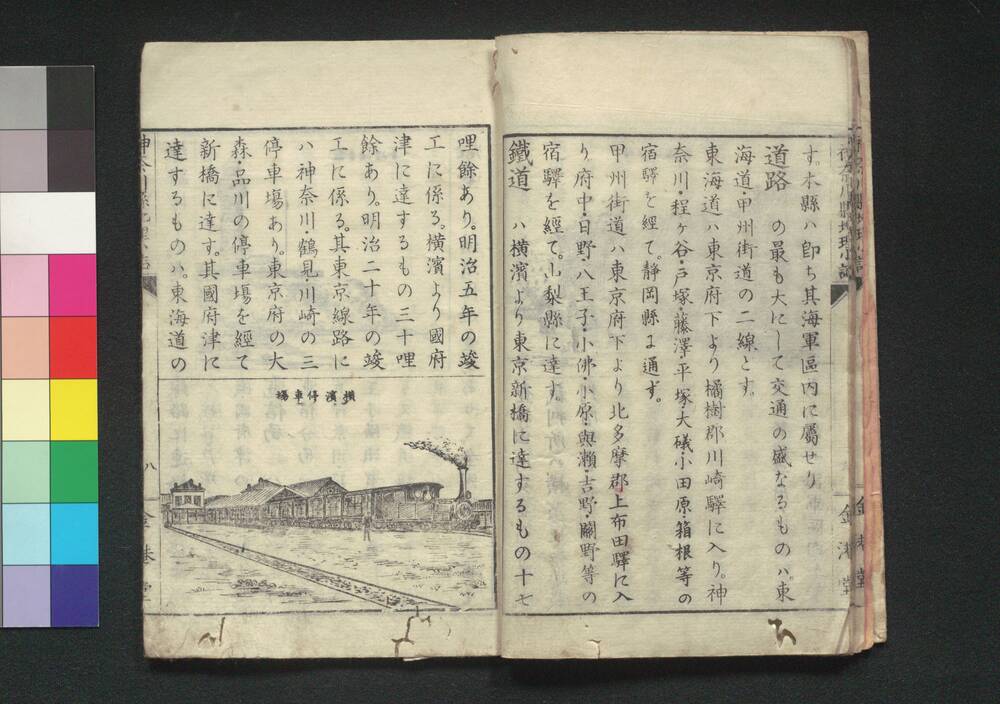 す。本縣ハ即ち其海軍區内に屬せり
道路　の最も大にして交通の盛なるものハ、東
海道・甲州街道の二線とす。
東海道ハ東京府下より橘樹郡川崎驛に入り。神
奈川・程ヶ谷・戸塚・藤澤・平塚・大磯・小田原・箱根等の
宿驛を經て。靜岡縣に通ず。
甲州街道ハ東京府下より北多摩郡上布田驛に入
り府中・日野・八王子・小佛・小原・與瀬・吉野・關野等の
宿驛を經て。山梨縣に達す。
鐵道　ハ横濱より東京新橋に達するもの十七
哩餘あり。明治五年の竣
工に係る。横濱より國府
津に達するもの三十哩
餘あり。明治二十年の竣
工に係る。其東京線路に
ハ神奈川・鶴見・川崎の三
停車塲あり。東京府の大
森・品川の停車塲を經て
新橋に達す。其國府津に
達するものハ。東海道の
横濱停車場
八